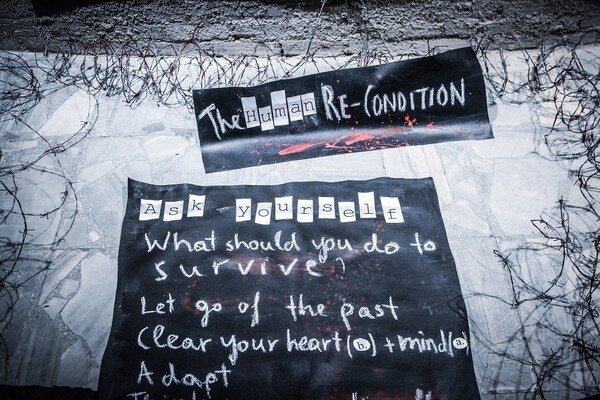 The Human RE-CONDITION
Ask yourself
What should you do to
survive?
Let go of the past
Clear your heart(b) + mind(a)
Adapt